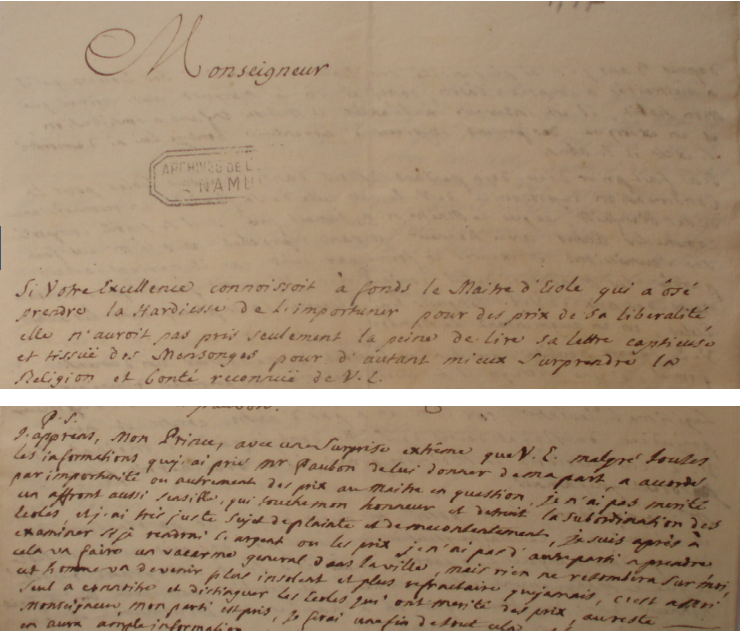 Monseigneur
ARCHIVES DE L
E NAMU
Si Votre Excellence connoissoit à fonds le Maitre d'Ecole qui a osé
prendre la Hardiesse de l'importuner pour des prix de sa liberalité
elle n'auroit pas pris seulement la peine de lire sa lettre captieuse
et tissuë des Mensonges pour d'autant mieux Surprendre la
Religion et bonté reconnuë de V. E.
P. S.
J'apprens, Mon Prince, avec une Surprise extrême que V. E. malgré toutes
les informations que j'ai prié Mr de lui donner de ma part, a accordé
par importunité ou autrement des prix au Maitre en question, je n'ai pas merité
un affront aussi sensible, qui touche mon honneur et detruit la subordination des
ecoles et j'ai tres juste Sujet de plainte et de mecontentement, Je suis après à
examiner si je rendrai l'argent ou les prix je n'ai pas d'autre parti a prendre
cela va faire un vacarme general dans la ville, mais rien ne retombera sur moi,
cet homme va devenir plus insolent et plus refractaire que jamais, c'est a
seul a connoitre et distinguer les Ecoles qui ont merité des prix, au reste
Monseigneur, mon parti est pris, Je ferai une fin de tout cela
en aura ample information